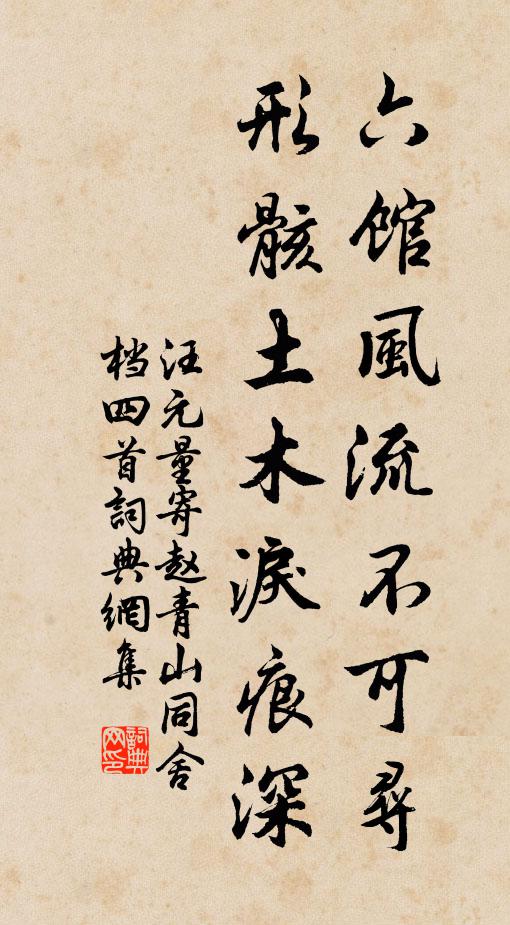 六館風流不可尋
形骸土木淚痕深
汪元量寄赵青山同舍
档四首詞典網集
詞典
网印